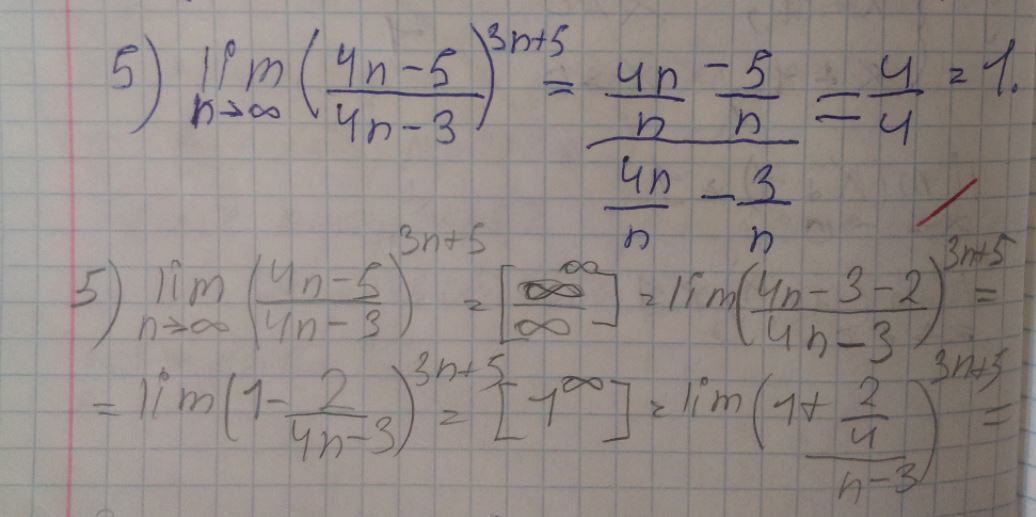 5) lim n→∞ ((4n-5)/(4n-3))^(3n+5) = (4n/n - 5/n)/(4n/n - 3/n) = 4/4 = 1.
5) lim n→∞ ((4n-5)/(4n-3))^(3n+5) = [∞/∞]^∞ = lim((4n-3-2)/(4n-3))^(3n+5) =
= lim(1-2/(4n-3))^(3n+5) = [1^∞] = lim(1+(2/4)/(n-3))^(3n+5) =